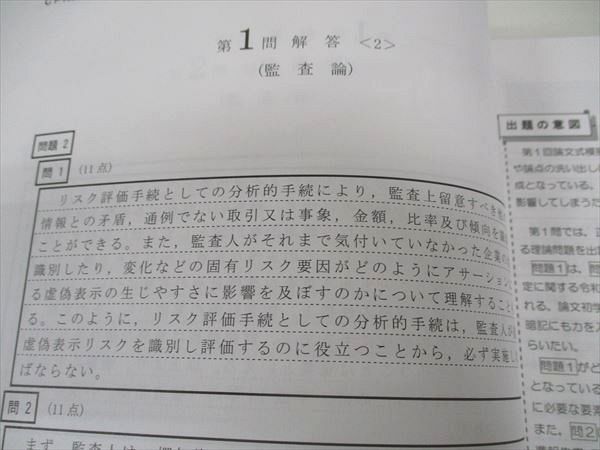 第1問解答<2>
(監査論)
問題2
問1 (11点)
リスク評価手続としての分析的手続により，監査上留意すべき
情報との矛盾，通例でない取引又は事象，金額，比率及び傾向を
ことができる。また，監査人がそれまで気付いていなかった企業の
識別したり，変化などの固有リスク要因がどのようにアサーション
る虚偽表示の生じやすさに影響を及ぼすのかについて理解すること
る。このように，リスク評価手続としての分析的手続は，監査人が
虚偽表示リスクを識別し評価するのに役立つことから，必ず実施し
ばならない。
問2 (11点)
まず，監査人は，
出題の意図
第1回論文式模
や論点の洗い出し
成となっている。
影響してしまうた
第1問では，正
る理論問題を出
問題1は，問
定に関する令和
れる，論文初学
暗記にも力を入
らいたい。
問題1がど
となっている
に必要な要素
また，問2